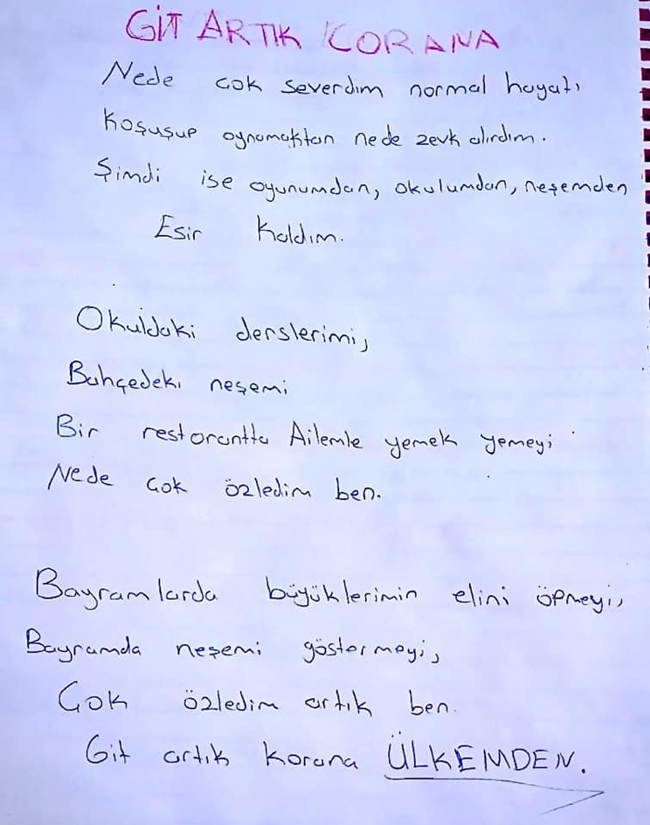 GİT ARTIK CORANA
Nede çok severdim normal hayatı
Koşuşup oynamaktan nede zevk alırdım.
Şimdi ise oyunumdan, okulumdan, neşemden
Esir Kaldım.
Okuldaki derslerimi,
Bahçedeki neşemi
Bir restorantta Ailemle yemek yemeyi
Nede çok özledim ben.
Bayramlarda büyüklerimin elini öpmeyi,
Bayramda neşemi göstermeyi,
Çok özledim artık ben.
Git artık korana ÜLKEMDEN.